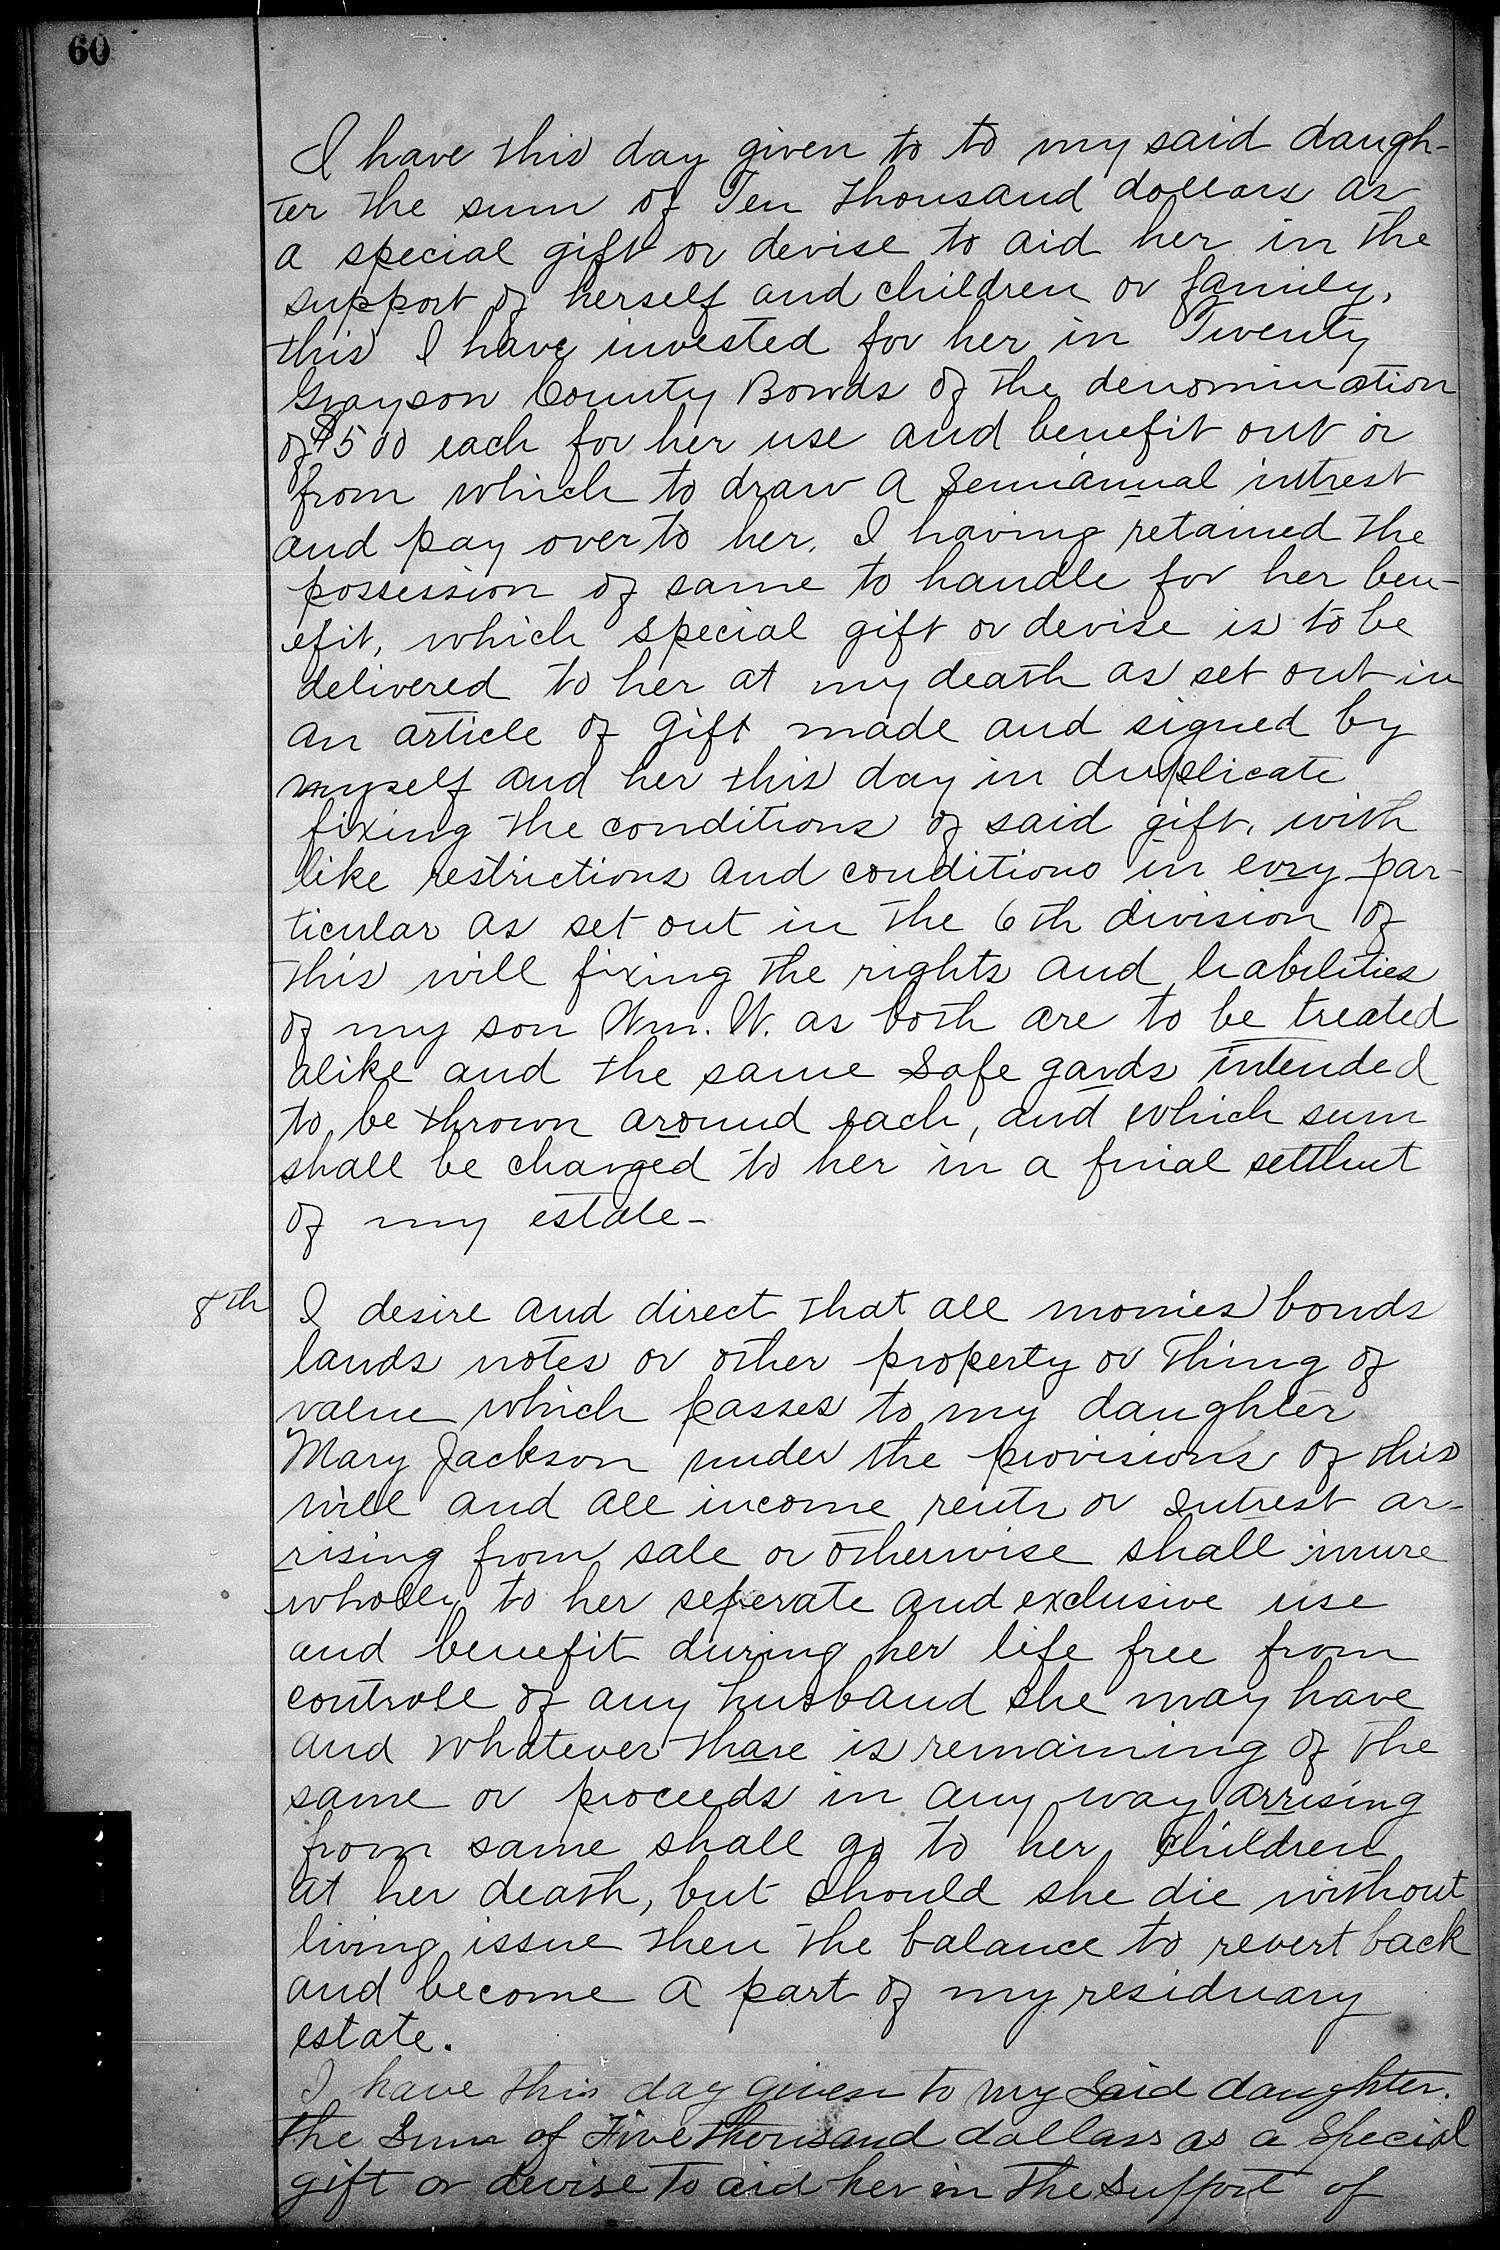 60
I have this day given to to my said daugh-
ter the sum of Ten thousand dollars as
a special gift or devise to aid her in the
support of herself and children or family,
this I have invested for her in Twenty
Grayson County Bonds of the denomination
of $500 each for her use and benefit out or
from which to draw a semianual intrest
and pay over to her. I having retained the
possession of same to handle for her ben-
efit, which special gift or devise is to be
delivered to her at my death as set out in
an article of gift made and signed by
myself and her this day in duplicate
fixing the conditions of said gift, with
like restrictions and conditions in evry par-
ticular as set out in the 6th division of
this will fixing the rights and liabilities
of my son Wm. W. as both are to be treated
alike and the same safe gards intended
to be thrown around each, and which sum
shall be charged to her in a final settlmt
of my estate-
8th I desire and direct that all monies bonds
lands notes or other property or thing of
value which passes to my daughter
Mary Jackson under the provisions of this
will and all income rents or intrest ar-
rising from sale or otherwise shall inure
wholly to her seperate and exclusive use
and benefit during her life free from
controll of any husband she may have
and whatever thare is remaining of the
same or proceeds in any way arrising
from same shall go to her children
at her death, but should she die without
living issue then the balance to revert back
and become a part of my residuary
estate.
I have this day given to my said daughter.
the sum of Five thousand dollars as a special
gift or devise to aid her in the support of